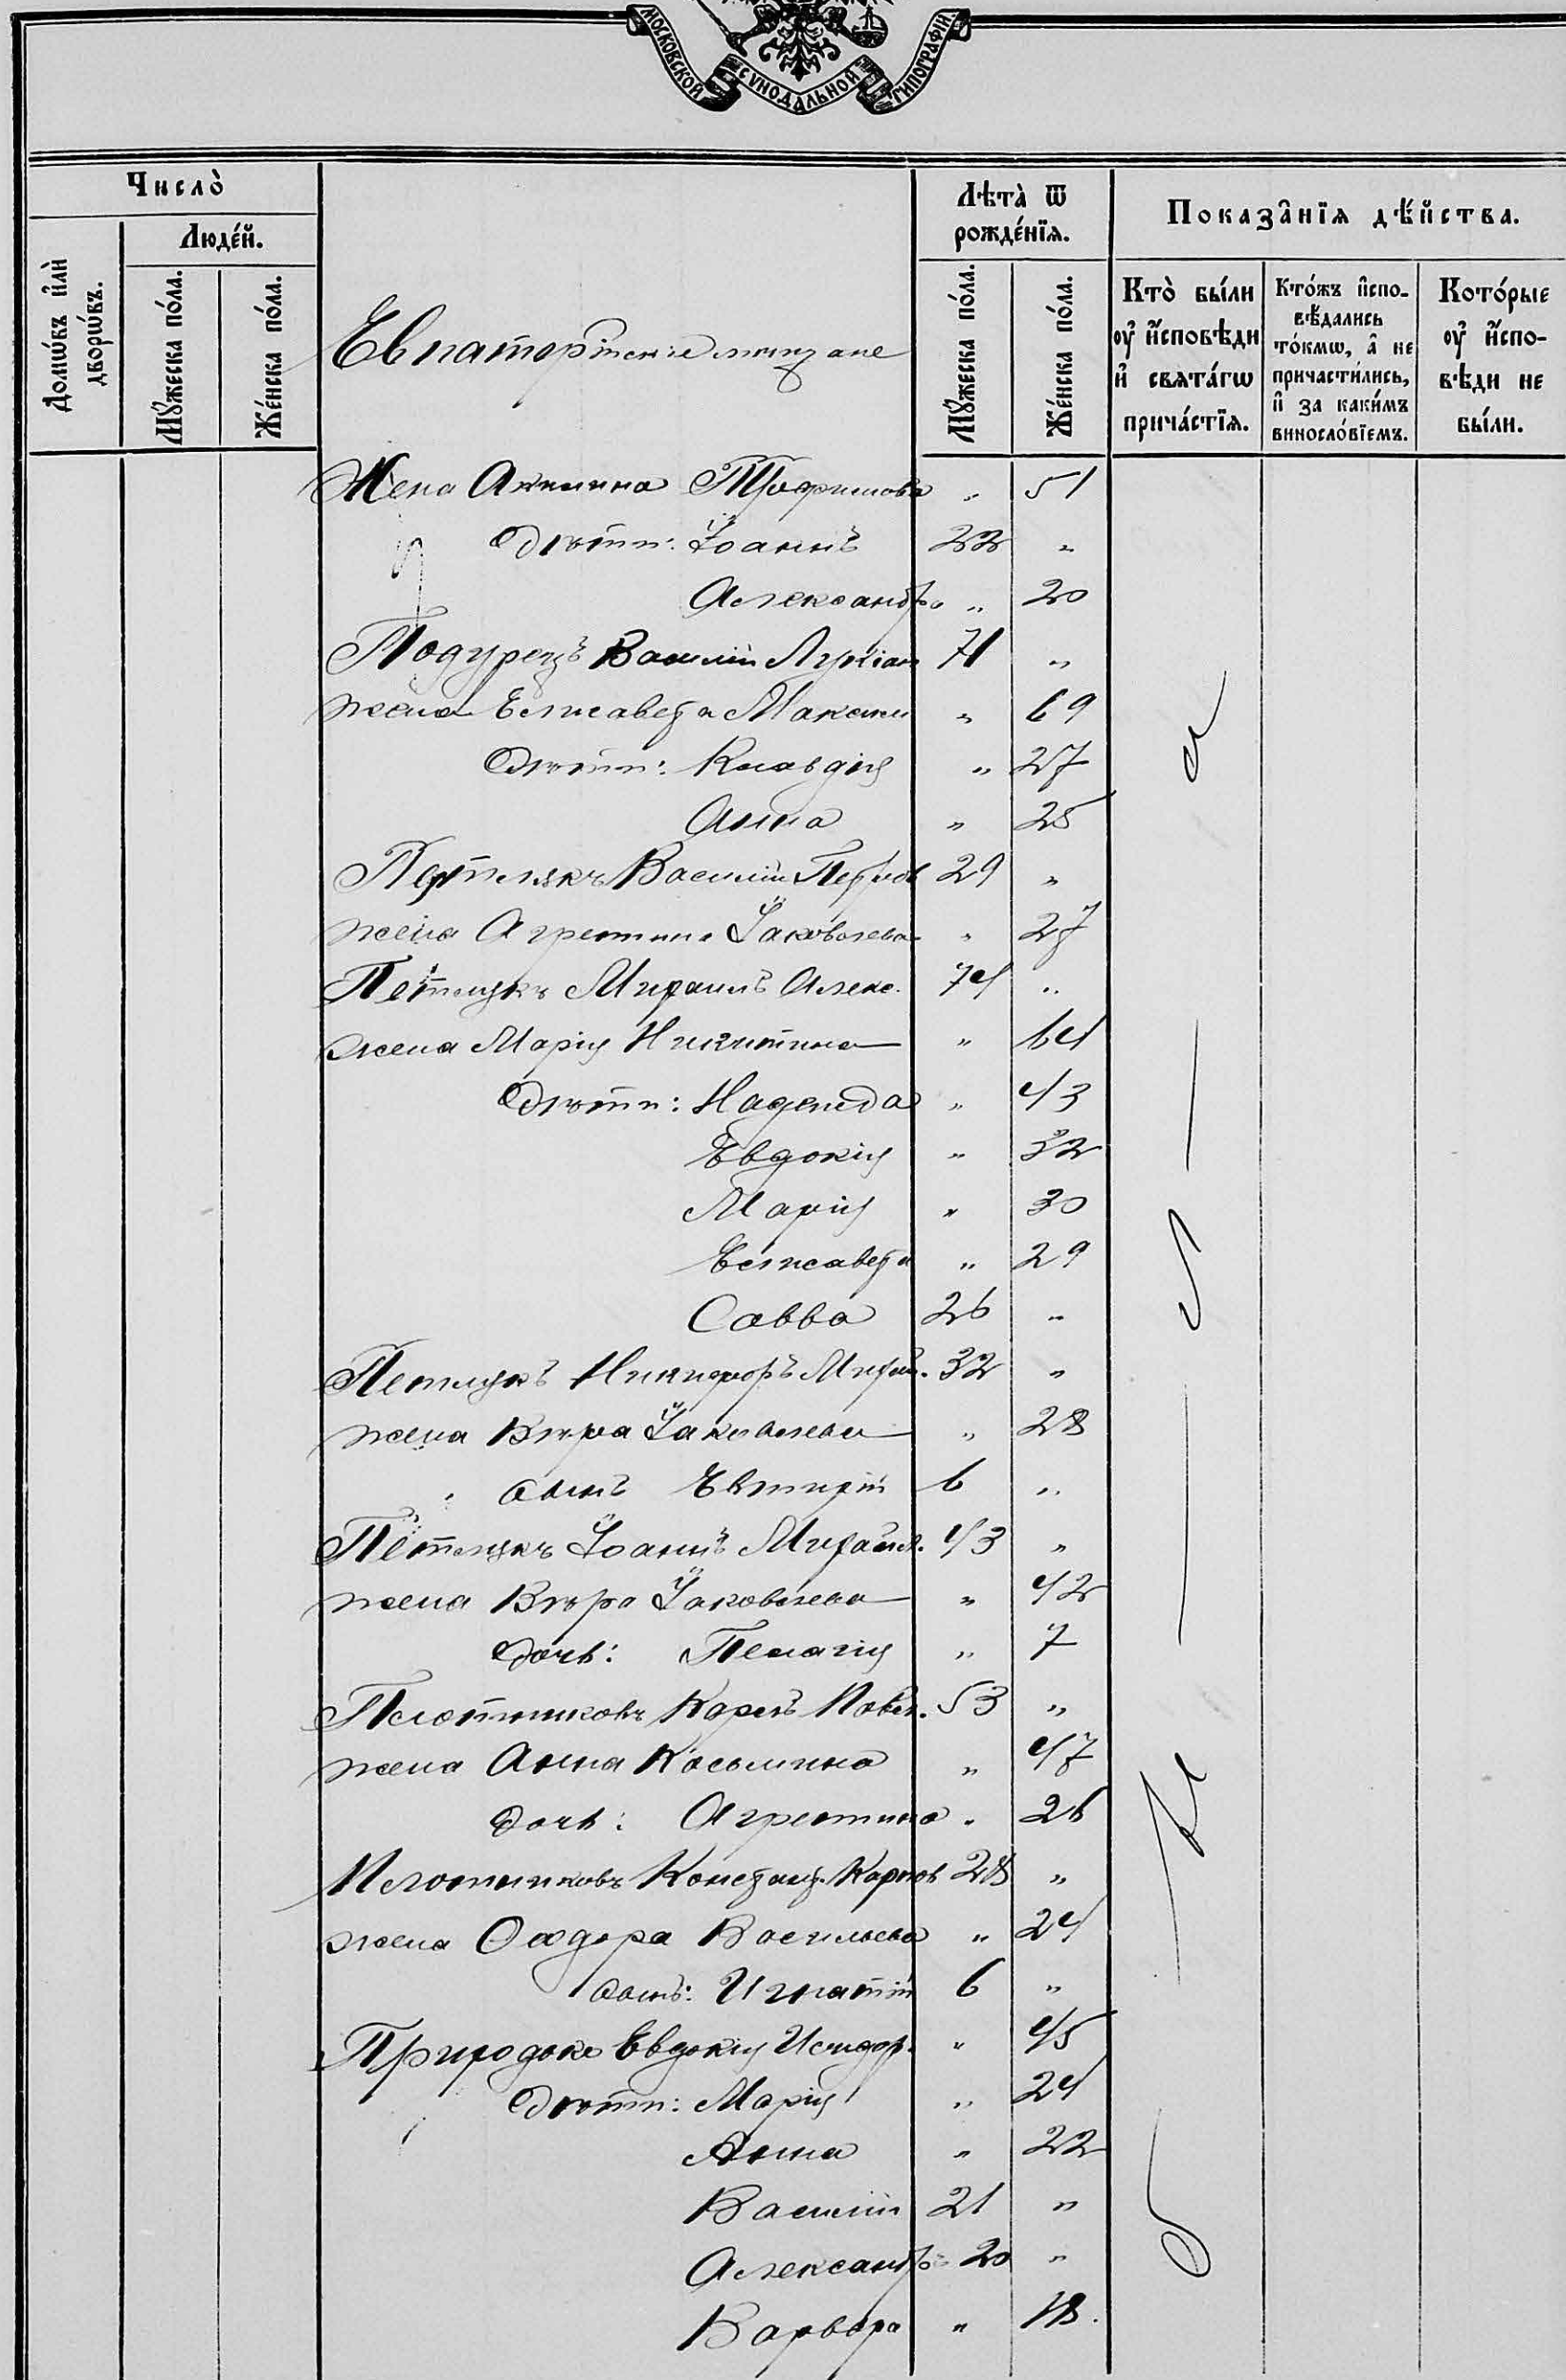 МОСКОВСКОЙ СѴНОДАЛЬНОЙ ТИПОГРАФІИ.
Число̀
Люде́й.
Домѡ́въ и҆лѝ дворѡ́въ.
Мꙋ́жеска по́ла.
Же́нска по́ла.
Лѣта̀ ѿ рожде́нїѧ.
Мꙋ́жеска по́ла.
Же́нска по́ла.
Показа̑нїѧ дѣ́йства.
Кто̀ бы́ли оу҆ и҆сповѣди и҆ свѧта́гѡ прича́стїѧ.
Кто́жъ и҆спо-вѣ́дались то́кмѡ, а҆ не причасти́лись, и҆ за каки́мъ винослό́вїемъ.
Кото́рые оу҆ и҆спо-вѣди не бы́ли.
Евпаторійскіе мѣщане
Жена Акилина Трофимова „ 51
Дѣти: Іоаннъ 22 „
Александра „ 20
Подурецъ Василій Лукіан 71 „
жена Елисавета Максим „ 69
Дѣти: Клавдія „ 27
Анна „ 25
Петлякъ Василій Петров 29 „
жена Агрепина Іаковлева „ 27
Петлякъ Михаилъ Алекс. 74 „
жена Марія Никитина „ 64
Дѣти: Надежда „ 43
Евдокія „ 32
Марія „ 30
Елисавета „ 29
Савва 26 „
Петлякъ Никифоръ Михаи. 32 „
жена Вѣра Іаковлева „ 28
сынъ Евтихій 6 „
Петлякъ Іоаннъ Михаил. 43 „
жена Вѣра Іаковлева „ 42
дочь: Пелагія „ 7
Плотниковъ Карпъ Павл. 53 „
жена Анна Косьмина „ 47
дочь: Агрепина „ 26
Плотниковъ Констант. Карпов 28 „
жена Ѳеодора Васильева „ 24
сынъ: Игнатій 6 „
Приходько Евдокія Исидор. „ 45
Дѣти: Марія „ 24
Анна „ 22
Василій 21 „
Александръ 20 „
Варвара „ 18.